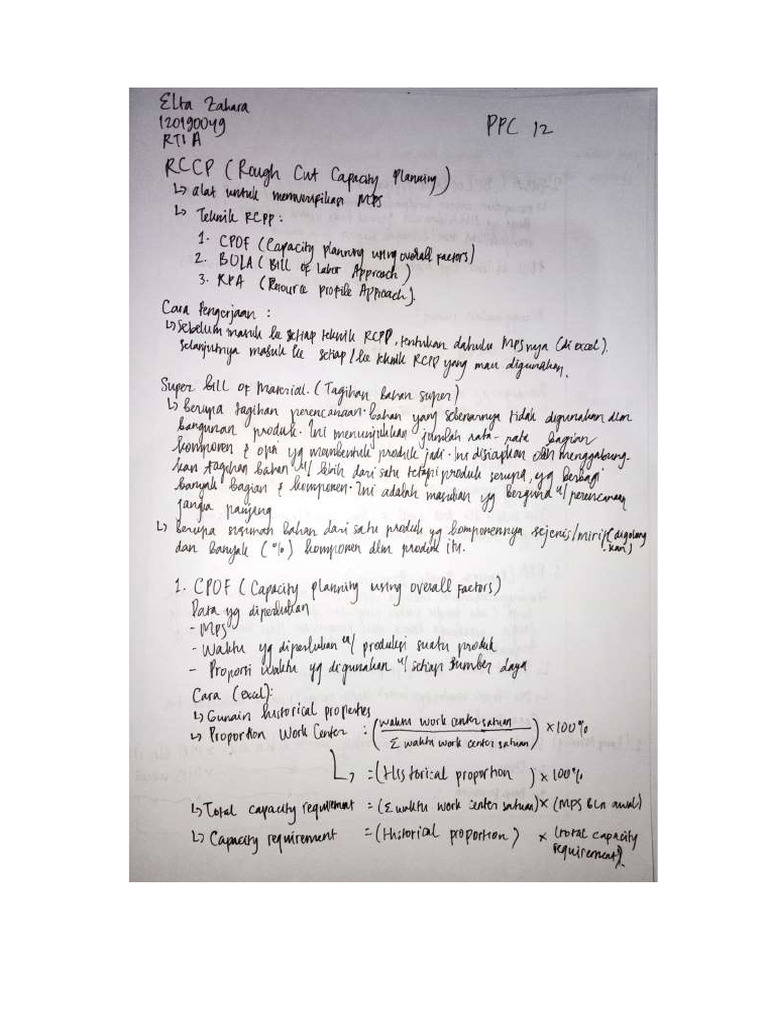 Elta Zahara
120190049
RTI A
PPC 12
RCCP (Rough Cut Capacity Planning)
↳ alat untuk memverifikasi MPS
↳ Teknik RCPP :
1. CPOF (Capacity planning using overall factors)
2. BOLA (Bill of Labor Approach)
3. RPA (Resource profile Approach).
Cara Pengerjaan :
↳ Sebelum masuk ke setiap teknik RCPP, tentukan dahulu MPSnya (di excel).
Selanjutnya masuk ke setiap/ke teknik RCPP yang mau digunakan.
Super Bill of Material. (Tagihan bahan super)
↳ Berupa tagihan perencanaan bahan yang sebenarnya tidak digunakan dlm
bangunan produk. Ini menunjukkan jumlah rata-rata bagian
komponen & opsi yg membentuk produk jadi. Ini disiapkan oleh menggabung-
kan tagihan bahan u/ lebih dari satu tetapi produk serupa, yg berbagi
banyak bagian & komponen. Ini adalah masukan yg berguna u/ perencanaan
jangka panjang
↳ Berupa susunan bahan dari satu produk yg komponennya sejenis/mirip (digolong
kan)
dan banyak (%) komponen dlm produk itu.
1. CPOF (Capacity planning using overall factors)
Data yg diperlukan
- MPS
- Waktu yg diperlukan u/ produksi suatu produk
- Proporsi waktu yg digunakan u/ setiap sumber daya
Cara (excel):
↳ Gunain historical properties
↳ Proportion Work Center : (waktu work center satuan / Σ waktu work center satuan) × 100%
↳ = (Historical proportion) × 100%
↳ Total capacity requirement = (Σ waktu work center satuan) × (MPS Bln awal)
↳ Capacity requirement = (Historical proportion) × (total capacity
requirement).